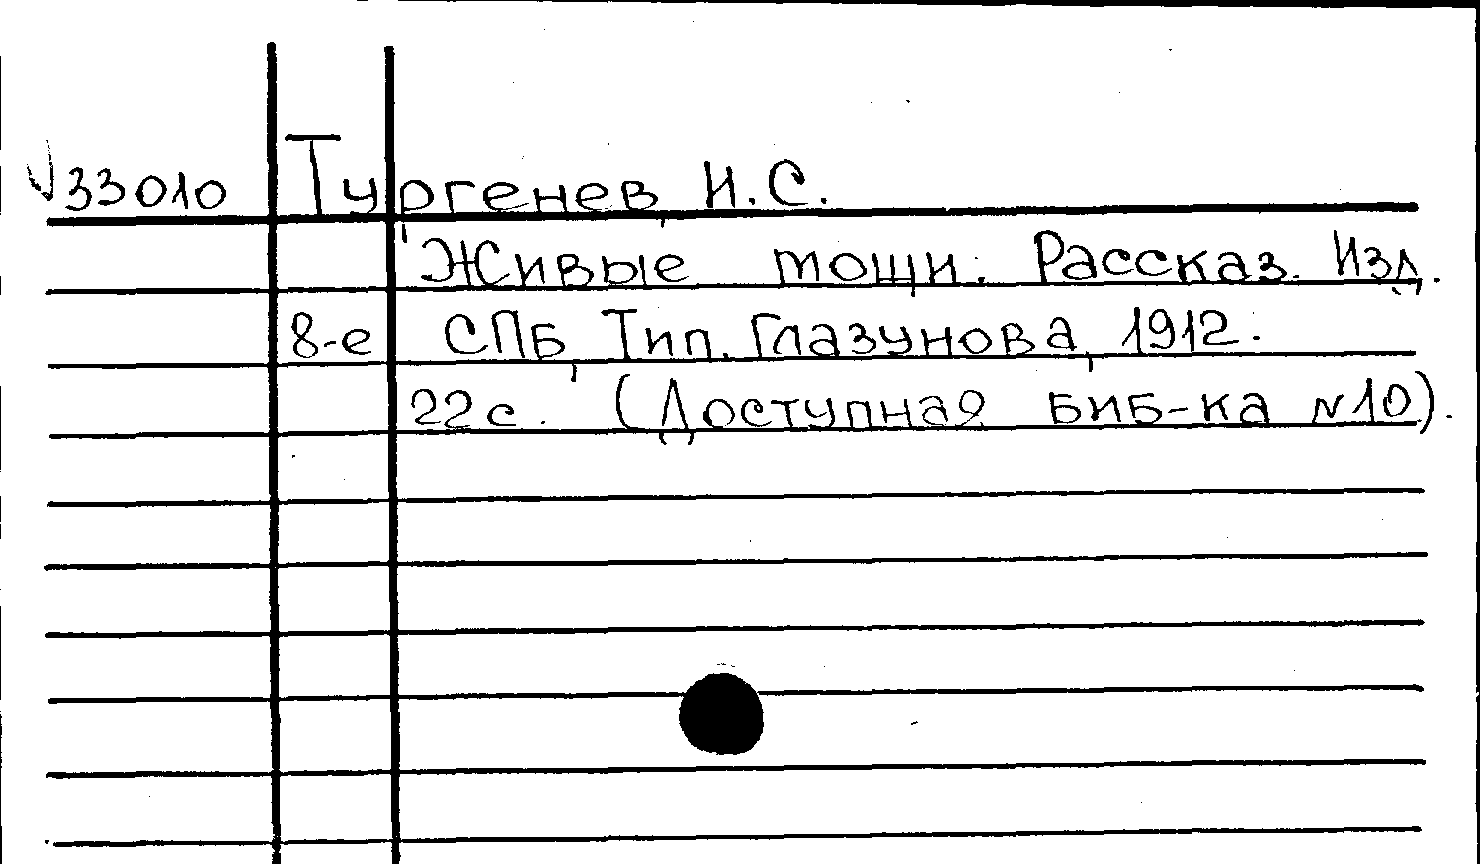 √33010 Тургенев, И.С.
Живые мощи. Рассказ. Изд.
8-е СПБ, Тип. Глазунова, 1912.
22с. (Доступная биб-ка №10).